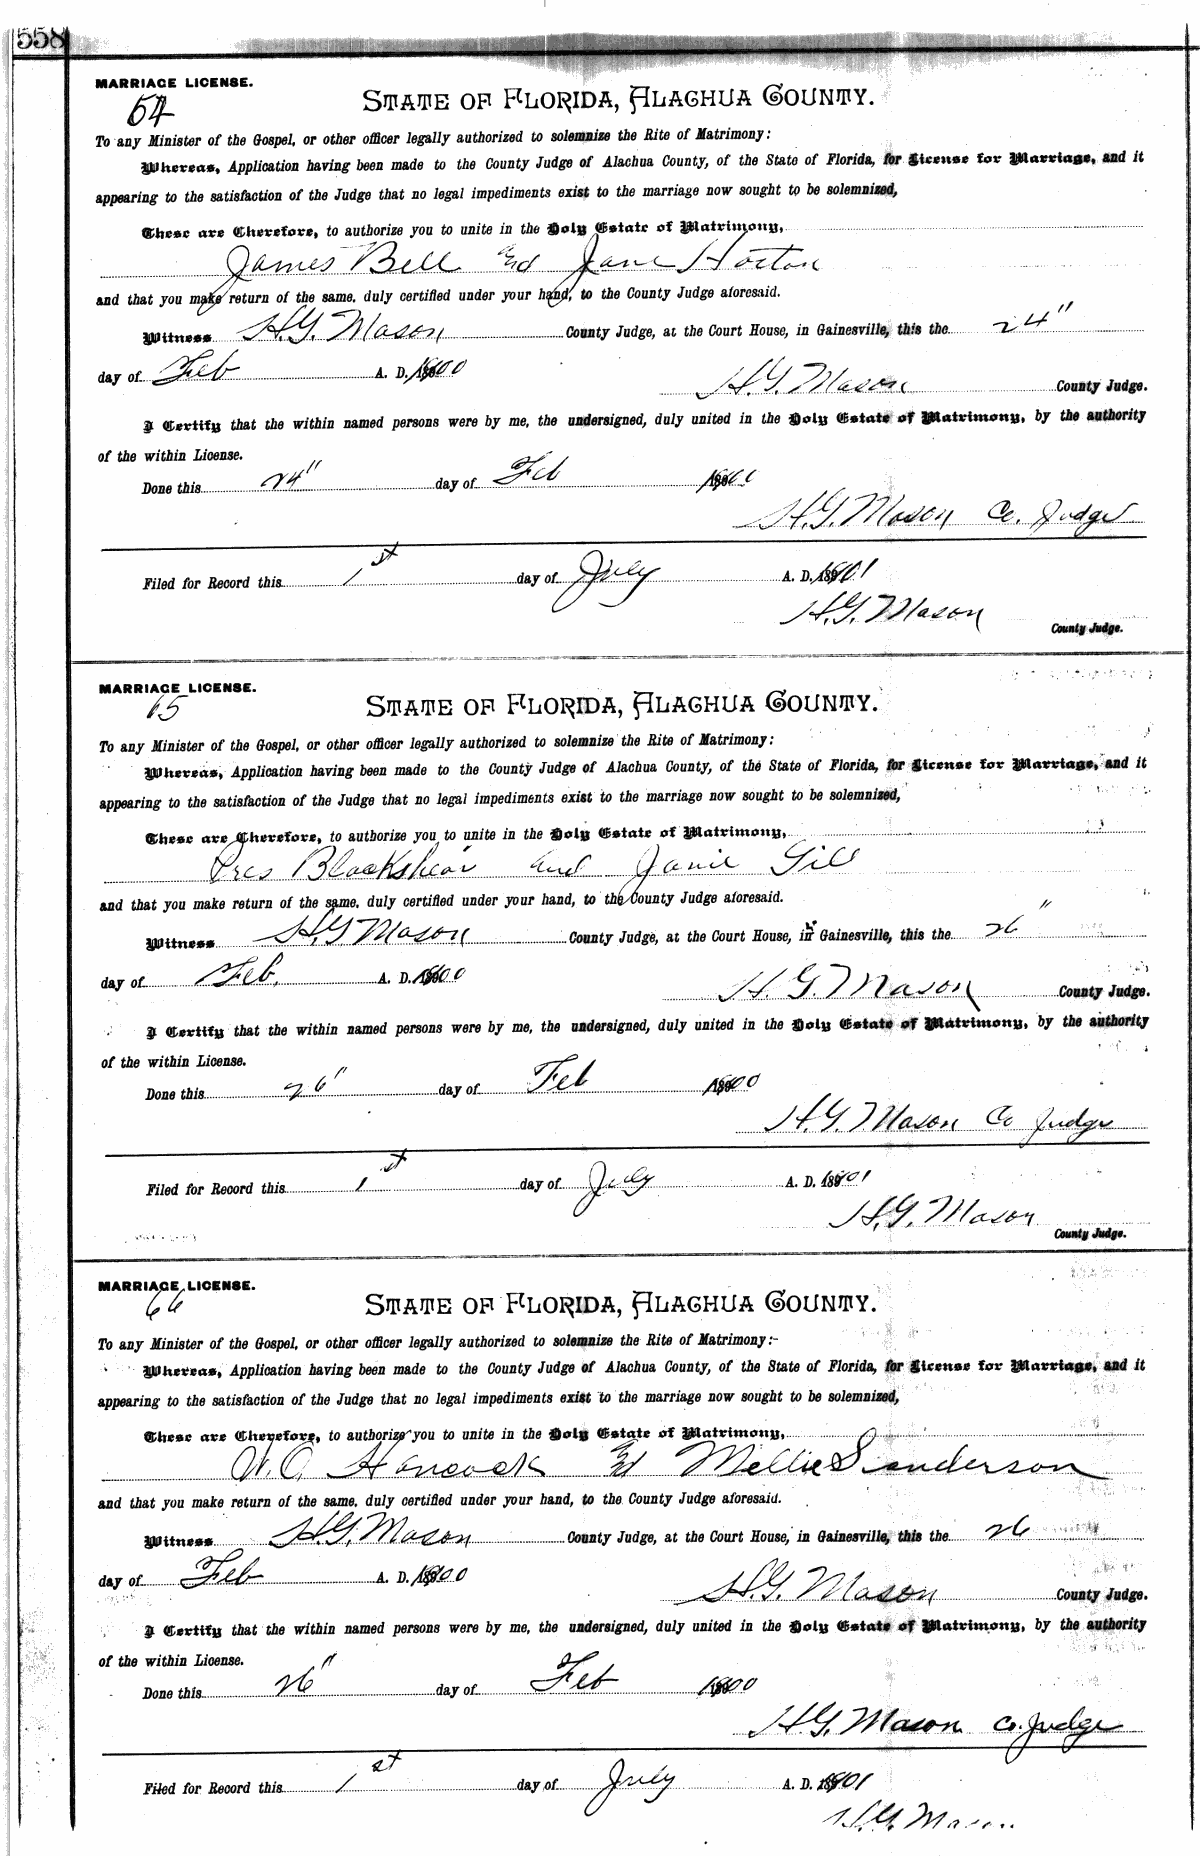 558
MARRIAGE LICENSE.
64
STATE OF FLORIDA, ALACHUA COUNTY.
To any Minister of the Gospel, or other officer legally authorized to solemnize the Rite of Matrimony:
Whereas, Application having been made to the County Judge of Alachua County, of the State of Florida, for License for Marriage, and it
appearing to the satisfaction of the Judge that no legal impediments exist to the marriage now sought to be solemnized,
These are Therefore, to authorize you to unite in the Holy Estate of Matrimony,
James Bell and Jane Horton
and that you make return of the same, duly certified under your hand, to the County Judge aforesaid.
Witness H.G. Mason County Judge, at the Court House, in Gainesville, this the 24"
day of Feb A. D. 1900
H.G. Mason County Judge.
I Certify that the within named persons were by me, the undersigned, duly united in the Holy Estate of Matrimony, by the authority
of the within License.
Done this 24" day of Feb 1900
H.G. Mason Co. Judge
Filed for Record this 1st day of July A. D. 1901
H.G. Mason
County Judge.
MARRIAGE LICENSE.
65
STATE OF FLORIDA, ALACHUA COUNTY.
To any Minister of the Gospel, or other officer legally authorized to solemnize the Rite of Matrimony:
Whereas, Application having been made to the County Judge of Alachua County, of the State of Florida, for License for Marriage, and it
appearing to the satisfaction of the Judge that no legal impediments exist to the marriage now sought to be solemnized,
These are Therefore, to authorize you to unite in the Holy Estate of Matrimony,
Blackshear and Janie Gill
and that you make return of the same, duly certified under your hand, to the County Judge aforesaid.
Witness H.G. Mason County Judge, at the Court House, in Gainesville, this the 26"
day of Feb. A. D. 1900
H. G. Mason County Judge.
I Certify that the within named persons were by me, the undersigned, duly united in the Holy Estate of Matrimony, by the authority
of the within License.
Done this 26" day of Feb 1900
H.G. Mason Co Judge
Filed for Record this 1st day of July A. D. 1901
H.G. Mason
County Judge.
MARRIAGE LICENSE.
66
STATE OF FLORIDA, ALACHUA COUNTY.
To any Minister of the Gospel, or other officer legally authorized to solemnize the Rite of Matrimony:-
Whereas, Application having been made to the County Judge of Alachua County, of the State of Florida, for License for Marriage, and it
appearing to the satisfaction of the Judge that no legal impediments exist to the marriage now sought to be solemnized,
These are Therefore, to authorize you to unite in the Holy Estate of Matrimony,
W.O. Hancock and Mellie Sanderson
and that you make return of the same, duly certified under your hand, to the County Judge aforesaid.
Witness H.G. Mason County Judge, at the Court House, in Gainesville, this the 26
day of Feb A. D. 1900
H.G. Mason County Judge.
I Certify that the within named persons were by me, the undersigned, duly united in the Holy Estate of Matrimony, by the authority
of the within License.
Done this 26" day of Feb 1900
H.G. Mason Co. Judge
Filed for Record this 1st day of July A. D. 1901
H.G. Mason